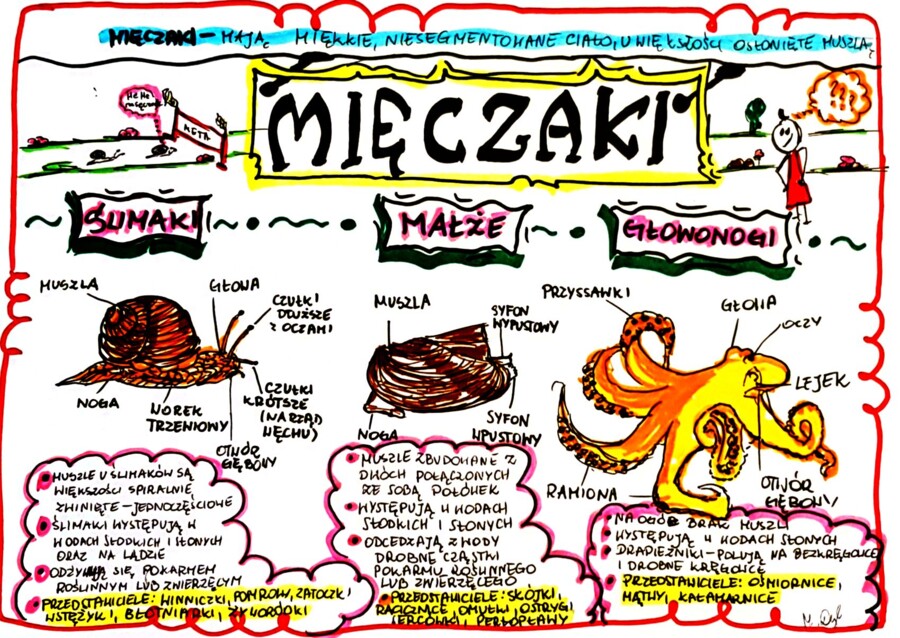 MIĘCZAKI – MAJĄ MIĘKKIE, NIESEGMENTOWANE CIAŁO, U WIĘKSZOŚCI OSŁONIĘTE MUSZLĄ
HE HE
META
MIĘCZAKI
!!!
ŚLIMAKI
MAŁŻE
GŁOWONOGI
MUSZLA
GŁOWA
CZUŁKI
DŁUŻSZE
Z OCZAMI
NOGA
WOREK
TRZEWIOWY
OTWÓR
GĘBOWY
CZUŁKI
KRÓTSZE
(NARZĄD
WĘCHU)
MUSZLE U ŚLIMAKÓW SĄ
WIĘKSZOŚCI SPIRALNIE
ZWINIĘTE – JEDNOCZĘŚCIOWE
ŚLIMAKI WYSTĘPUJĄ W
WODACH SŁODKICH I SŁONYCH
ORAZ NA LĄDZIE
ODŻYWIAJĄ SIĘ POKARMEM
ROŚLINNYM LUB ZWIERZĘCYM
PRZEDSTAWICIELE: WINNICZKI, POMROWY, ZATOCZKI
WSTĘŻYKI, BŁOTNIARKI, ŻYWORODKI
MUSZLA
SYFON
WYPUSTOWY
NOGA
SYFON
WPUSTOWY
MUSZLE ZBUDOWANE Z
DWÓCH POŁĄCZONYCH
ZE SOBĄ POŁÓWEK
WYSTĘPUJĄ W WODACH
SŁODKICH I SŁONYCH
ODCEDZAJĄ Z WODY
DROBNE CZĄSTKI
POKARMU ROŚLINNEGO
LUB ZWIERZĘCEGO
PRZEDSTAWICIELE: SKÓJKI,
RACICZNICE, OMUŁKI, OSTRYGI
SERCÓWKI, PERŁOPŁAWY
PRZYSSAWKI
GŁOWA
OCZY
LEJEK
RAMIONA
OTWÓR
GĘBOWY
NA OGÓŁ BRAK MUSZLI
WYSTĘPUJĄ W WODACH SŁONYCH
DRAPIEŻNIKI – POLUJĄ NA BEZKRĘGOWCE
I DROBNE KRĘGOWCE
PRZEDSTAWICIELE: OŚMIORNICE,
MĄTWY, KAŁAMARNICE